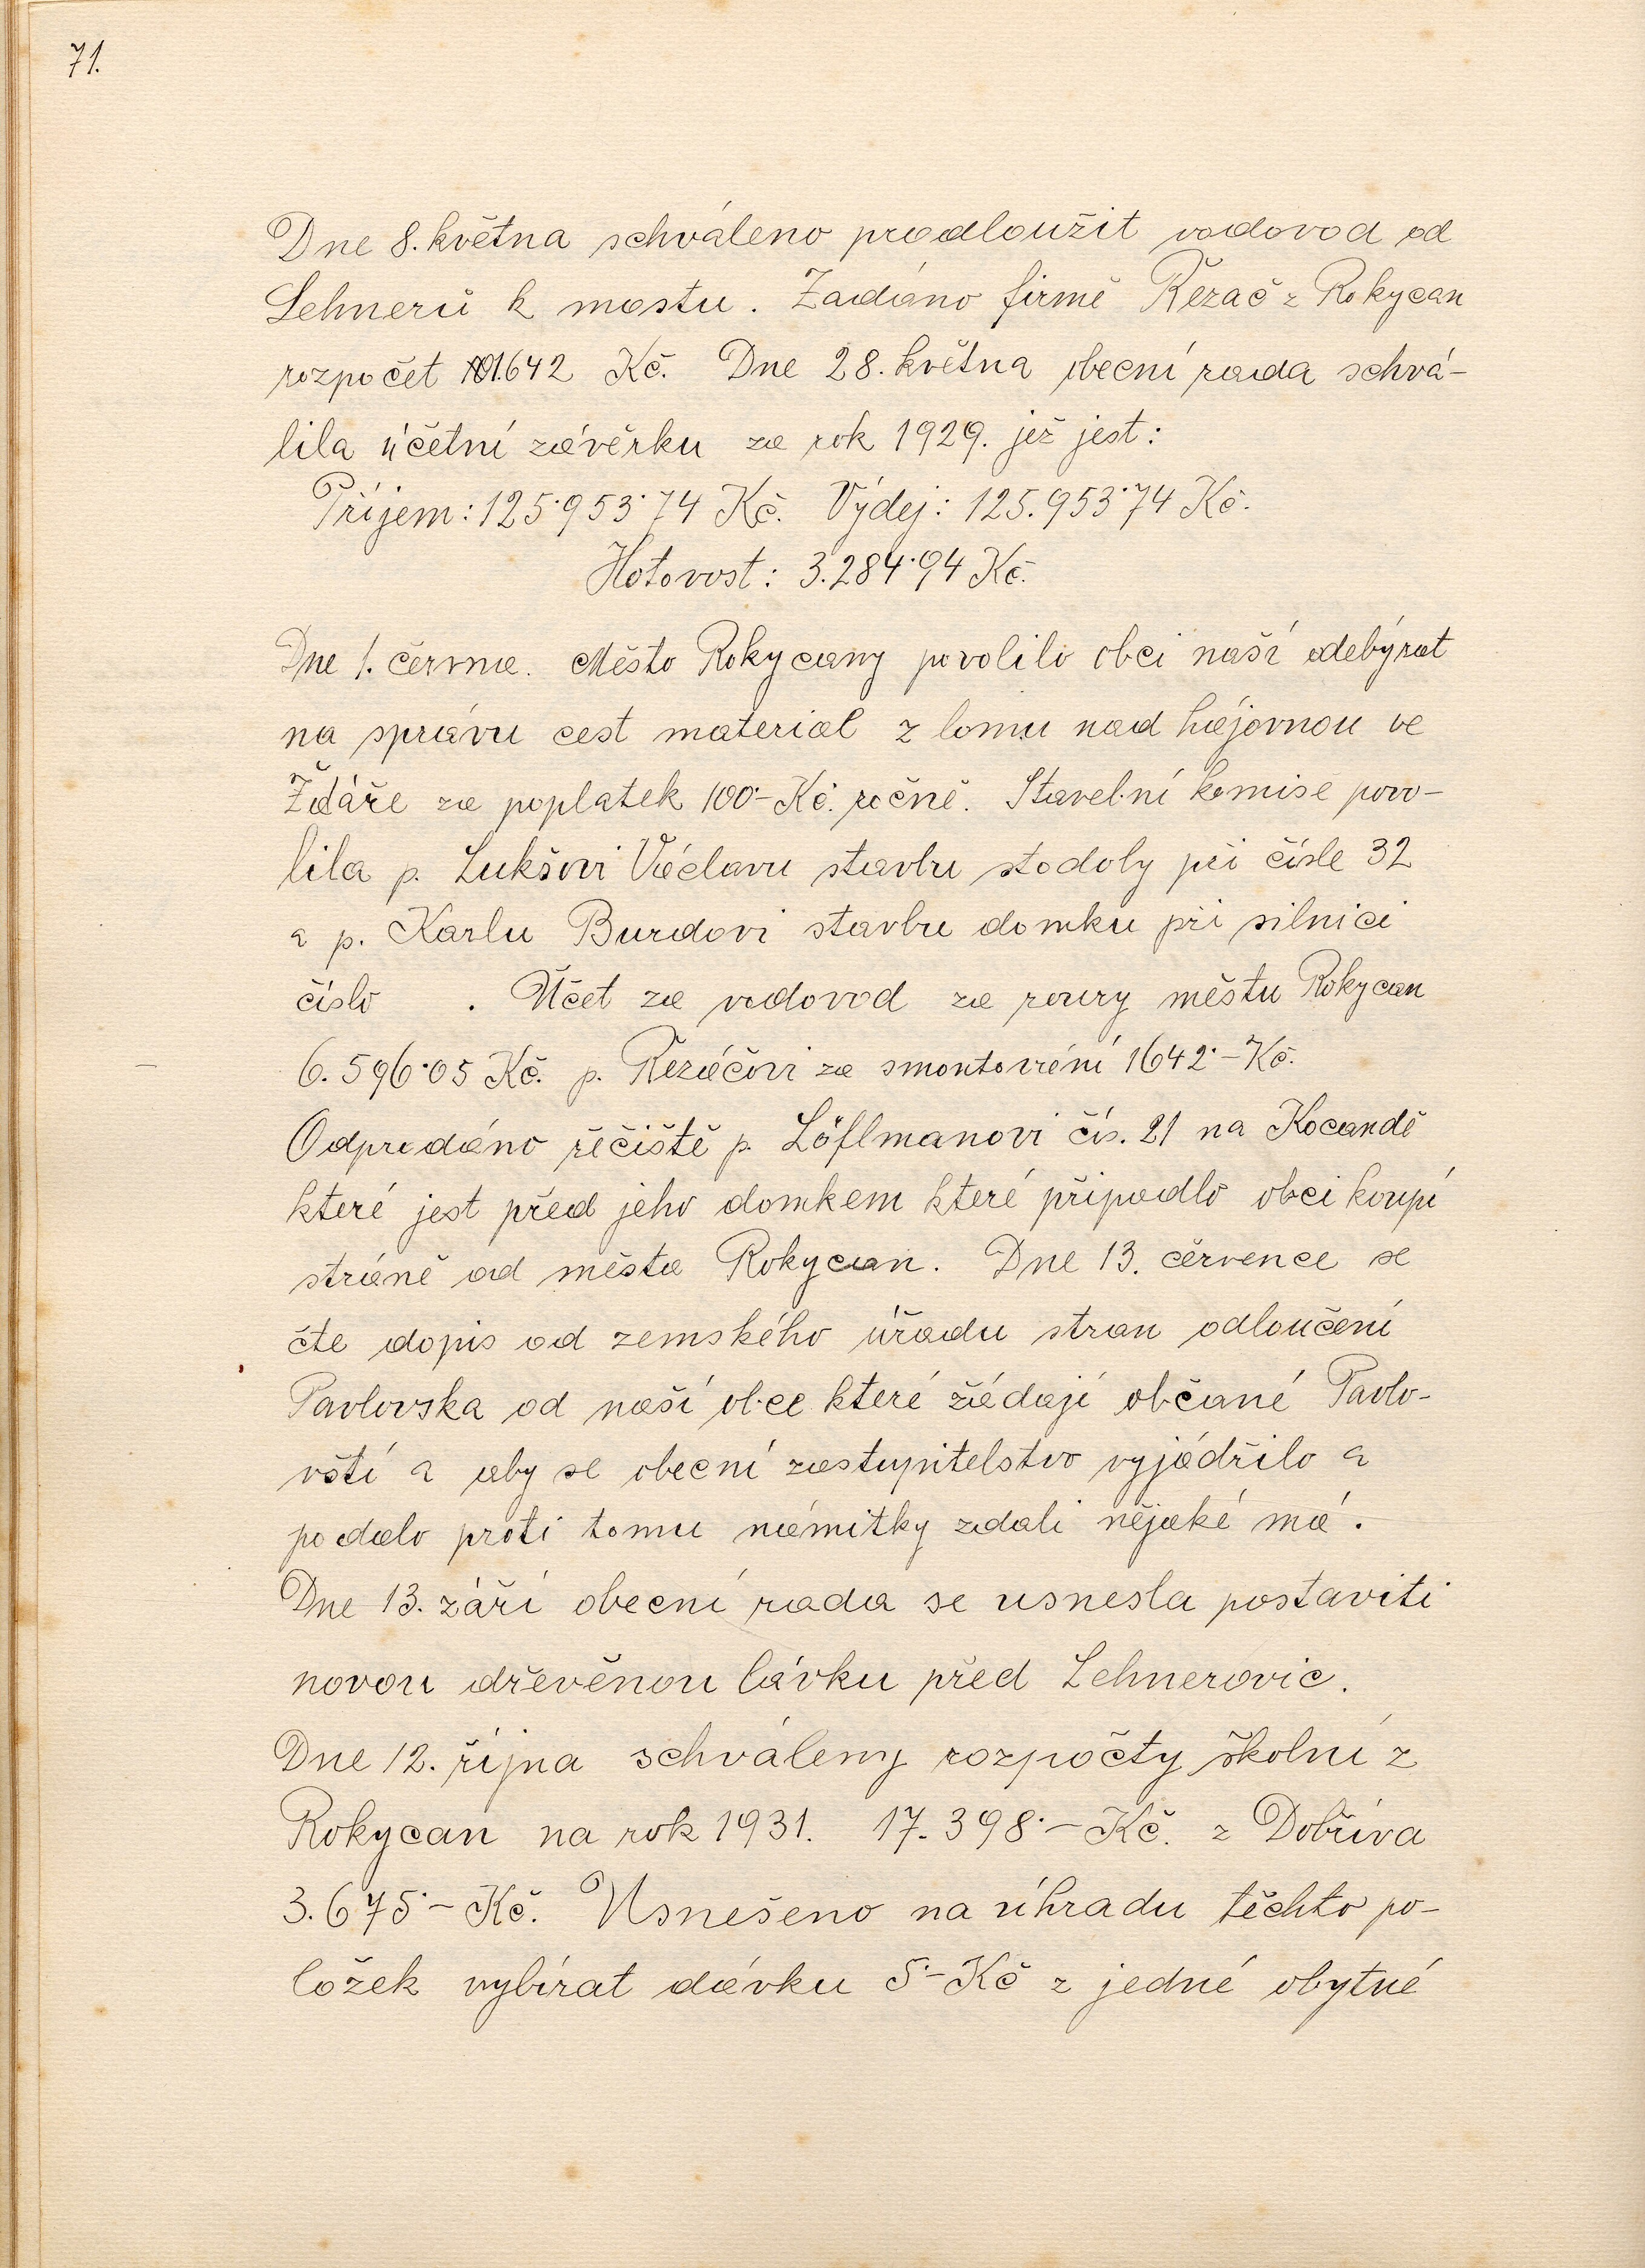 71.
Dne 8. května schváleno prodloužit vodovod od
Lehnerů k mostu. Zadáno firmě Řezač z Rokycan
rozpočet 1.642 Kč. Dne 28. května obecní rada schvá-
lila účetní závěrku za rok 1929. jež jest:
Příjem: 125.953˙74 Kč. Výdej: 125.953˙74 Kč.
Hotovost: 3.284˙94 Kč.
Dne 1. června. Město Rokycany povolilo obci naší odebýrat
na správu cest material z lomu nad hájovnou ve
Žďáře za poplatek 100˙- Kč. ročně. Stavební komise povo-
lila p. Lukšovi Václavu stavbu stodoly při čísle 32
a p. Karlu Burdovi stavbu domku při silnici
číslo . Účet za vodovod za roury městu Rokycan
6.596˙05 Kč. p. Řezáčovi za smontování 1642˙- Kč.
Odprodáno řéčiště p. Löflmanovi čís. 21 na Kocandě
které jest před jeho domkem které připadlo obci koupí
stráně od města Rokycan. Dne 13. července se
čte dopis od zemského úřadu stran odloučení
Pavlovska od naší obce které žádají občané Pavlo-
vští a aby se obecní zastupitelstvo vyjádřilo a
podalo proti tomu námitky zdali nějaké má.
Dne 13. září obecní rada se usnesla postaviti
novou dřevěnou lávku před Lehnerovic.
Dne 12. října schváleny rozpočty školní z
Rokycan na rok 1931. 17.398˙- Kč. z Dobříva
3.675˙- Kč. Usnešeno na úhradu těchto po-
ložek vybírat dávku 5˙- Kč z jedné obytné